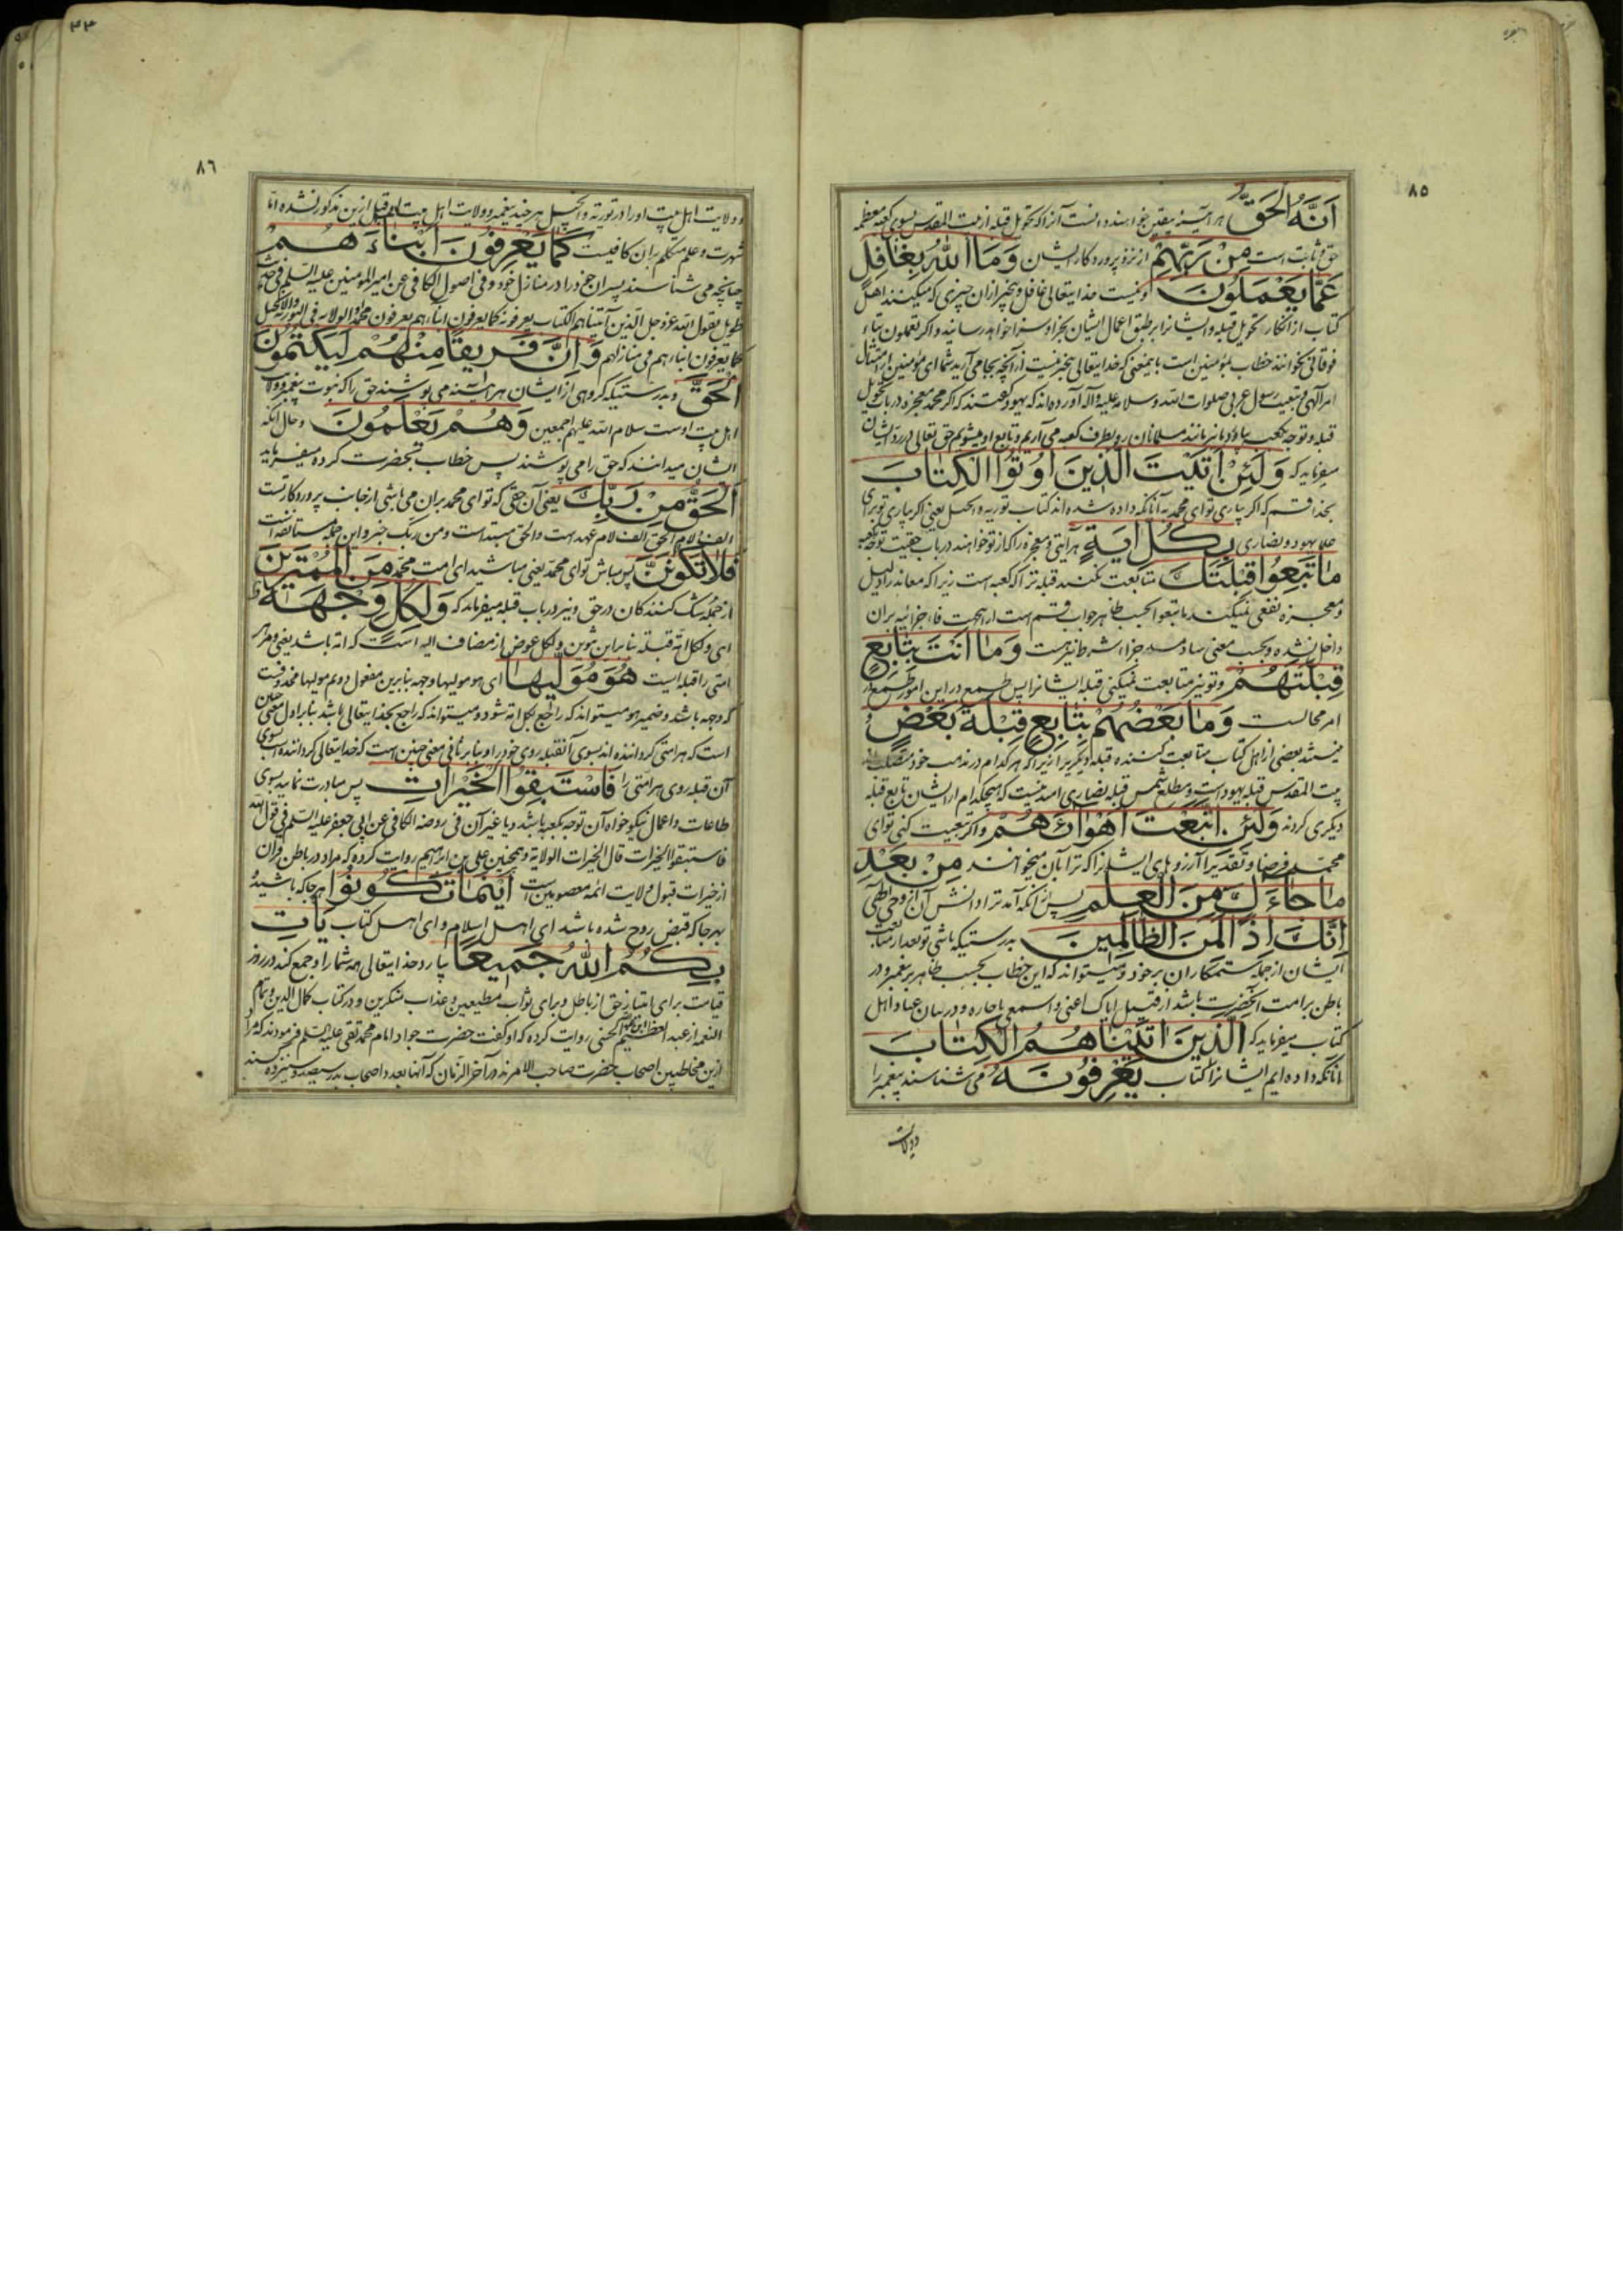 ۸۵
اَنَّهُ الْحَقُّ هر آینه بیقین خواهند دانست آنرا که تحویل قبله از بیت المقدس بسوی کعبه معظمه
حق و ثابت است مِنْ رَبِّهِمْ از نزد پروردکار ایشان وَمَا اللّٰهُ بِغَافِلٍ
عَمَّا يَعْمَلُونَ و نیست خدایتعالی غافل و بیخبر از ان چیزی که میکنند اهل
کتاب از انکار تحویل قبله و ایشانرا بر طبق اعمال ایشان بجزا و سزا خواهد رسانید و اکر تعملون بتاء
فوقانی بخوانند خطاب بمؤمنین است باینمعنی که خدایتعالی بیخبر نیست از آنچه بجا می آرید شما ای مؤمنین از امتثال
امر آلهی و تبعیت رسول عربی صلوات الله و سلامه علیه و آله آورده اند که یهود کفتند که اکر محمد معجزه در باب تحویل
قبله و توجه بکعبه بیاورد ما نیز مانند مسلمانان رو بطرف کعبه می آریم و تابع او میشویم حق تعالی در رد ایشان
میفرماید که وَلَئِنْ اَتَيْتَ الَّذِينَ اُوتُوا الْكِتَابَ
بخدا قسم که اکر بیاری تو ای محمد به آنانکه داده شده اند کتاب توریة و انجیل یعنی اکر بیاری تو برای
علما یهود و نصاری بِكُلِّ اٰيَةٍ هر آیتی و معجزه را که از تو خواهند در باب حقیت توجه بکعبه
مَا تَبِعُوا قِبْلَتَكَ متابعت نکنند قبله ترا که کعبه است زیرا که معاند را دلیل
و معجزه نفعی نمیکند ما تبعوا بحسب ظاهر جواب قسم است از اینجهت فاء جزائیه بران
داخل نشده و بحسب معنی ساد مسد جزاء شرط نیز هست وَمَا اَنْتَ بِتَابِعٍ
قِبْلَتَهُمْ و تو نیز متابعت نمیکنی قبله ایشانرا پس طمع در این امور طمع در
امر محالست وَمَا بَعْضُهُمْ بِتَابِعٍ قِبْلَةَ بَعْضٍ و
نیستند بعضی از اهل کتاب متابعت کننده قبله دیکریرا زیرا که هر کدام در مذهب خود متصلب اند
بیت المقدس قبله یهود است و مطلع شمس قبله نصاری امید نیست که هیچکدام از ایشان تابع قبله
دیکری کردند وَلَئِنِ اتَّبَعْتَ اَهْوَاءَهُمْ و اکر تبعیت کنی تو ای
محمد فرضا و تقدیرا آرزوهای ایشانرا که ترا بآن میخوانند مِنْ بَعْدِ
مَا جَاءَكَ مِنَ الْعِلْمِ پس از آنکه آمد ترا دانش آن از وحی الهی
اِنَّكَ اِذًا لَمِنَ الظَّالِمِينَ بدرستیکه باشی تو بعد از متابعت
ایشان از جمله ستمکاران بر خود و میتواند که این خطاب بحسب ظاهر بر پیغمبر و در
باطن بر امت آنحضرت باشد از قبیل ایاک اعنی و اسمعی یا جاره و در بیان عناد اهل
کتاب میفرماید که اَلَّذِينَ اٰتَيْنَاهُمُ الْكِتَابَ
آنانکه داده ایم ایشانرا کتاب يَعْرِفُونَهُ می شناسند پیغمبر را
و ولایت
۳۳
۸٦
و ولایت اهل بیت او را در توریة و انجیل هر چند پیغمبر و ولایت اهل بیت او قبل ازین مذکور نشده اما
شهرت و علم متکلم بران کافیست كَمَا يَعْرِفُونَ اَبْنَاءَهُمْ
چنانچه می شناسند پسران خود را در منازل خود و فی اصول الکافی عن امیر المؤمنین علیه السلم فی حدیث
طویل یقول الله عز و جل الذین آتیناهم الکتاب یعرفونه کما یعرفون ابناءهم یعرفون محمدا و الولایه فی التوریة و الانجیل
کما یعرفون ابناءهم فی منازلهم وَاِنَّ فَرِيقًا مِنْهُمْ لَيَكْتُمُونَ
الْحَقَّ و بدرستیکه کروهی از ایشان هر آینه می پوشند حق را که نبوت پیغمبر و ولایت
اهل بیت اوست سلام الله علیهم اجمعین وَهُمْ يَعْلَمُونَ و حال آنکه
ایشان میدانند که حق را می پوشند پس خطاب بحضرت کرده میفرماید
اَلْحَقُّ مِنْ رَبِّكَ یعنی آن حقی که تو ای محمد بران می باشی از جانب پروردکار تست
الف و لام الحق الف لام عهد است و الحق مبتداست و من ربک خبر و این جمله مستانفه است
فَلَا تَكُونَنَّ پس مباش تو ای محمد یعنی مباشید ای امت محمد مِنَ الْمُمْتَرِينَ
از جمله شک کنندکان در حق و نیز در باب قبله میفرماید که وَلِكُلٍّ وِجْهَةٌ
ای و لکل امة قبلة بنابراین تنوین و لکل عوض از مضاف الیه است که امة باشد یعنی و مر هر
امتی را قبله ایست هُوَ مُوَلِّيهَا ای هو مولیها وجهه بنابرین مفعول دویم مولیها محذوفست
که وجهه باشد و ضمیر هو میتواند که راجع بکل امة شود و میتواند که راجع بخدایتعالی باشد بنابر اول معنی چنین
است که هر امتی کرداننده اند بسوی آنقبله روی خود را و بنابر ثانی معنی چنین است که خدایتعالی کرداننده است بسوی
آن قبله روی هر امتی را فَاسْتَبِقُوا الْخَيْرَاتِ پس مبادرت نمایید بسوی
طاعات و اعمال نیکو خواه آن توجه بکعبه باشد و یا غیر آن فی روضه الکافی عن ابی جعفر علیه السلم فی قول الله
فاستبقوا الخیرات قال الخیرات الولایة و همچنین علی بن ابراهیم روایت کرده که مراد در باطن قرآن
از خیرات قبول ولایت ائمه معصومین است اَيْنَمَا تَكُونُوا هر جا که باشید و
بهر جا که قبض روح شده باشد ای اهل اسلام و ای اهل کتاب يَأْتِ
بِكُمُ اللّٰهُ جَمِيعًا بیارد خدایتعالی همه شما را و جمع کند در روز
قیامت برای امتیاز حق از باطل و برای ثواب مطیعین و عذاب منکرین و در کتاب کمال الدین و تمام
النعمه از عبد العظیم الحسنی روایت کرده که او کفت حضرت جواد امام محمد تقی علیه السلم فرمودند که مراد
ازین مخاطبین اصحاب حضرت صاحب الامرند در آخر الزمان که آنها بعدد اصحاب بدر سیصد و سیزده